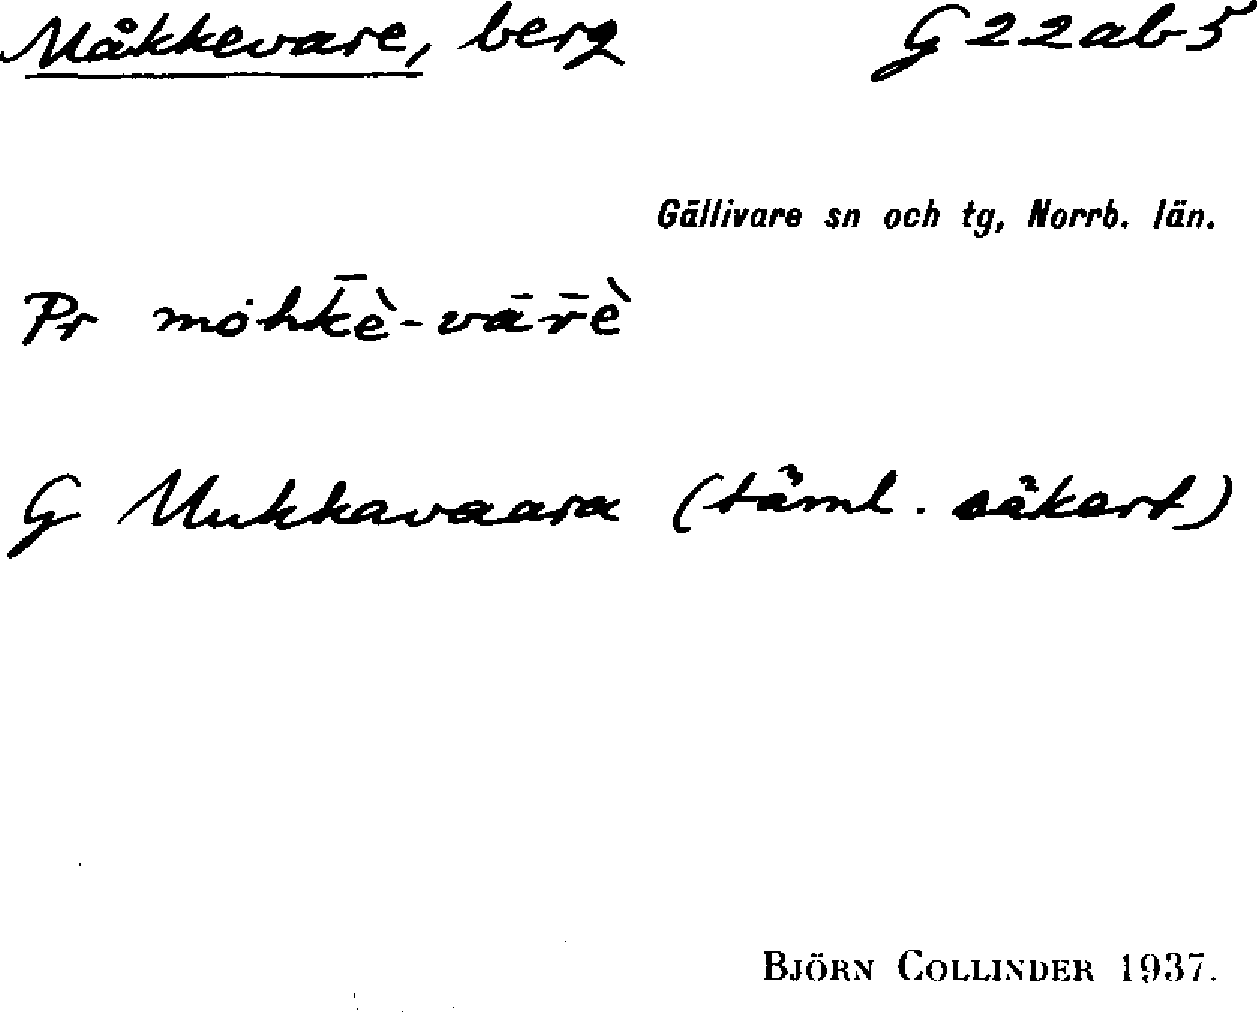 Måkkevare, berg G22ab5
Gällivare sn och tg, Norrb. län.
Pr mȯhk̄è-vār̄è
G Mukkavaara (täml. säkert)
BJÖRN COLLINDER 1937.